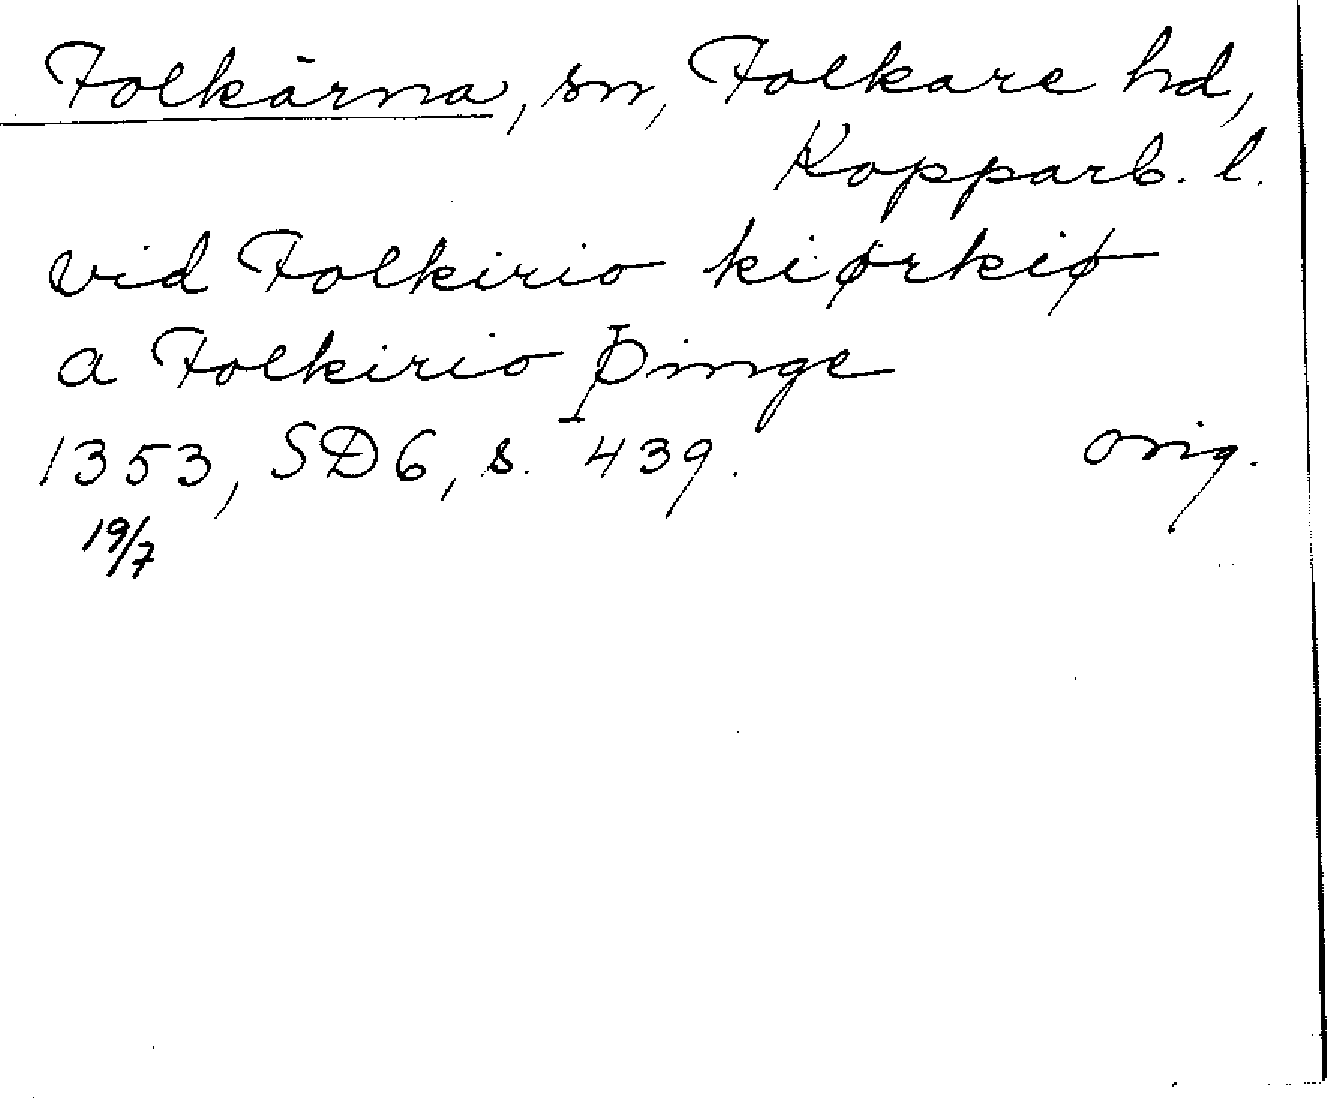 Folkärna, sn, Folkare hd,
Kopparb. l.
vid Folkirio kiørkiø
a Folkirio Þinge
1353, SD6, s. 439. orig.
19/7